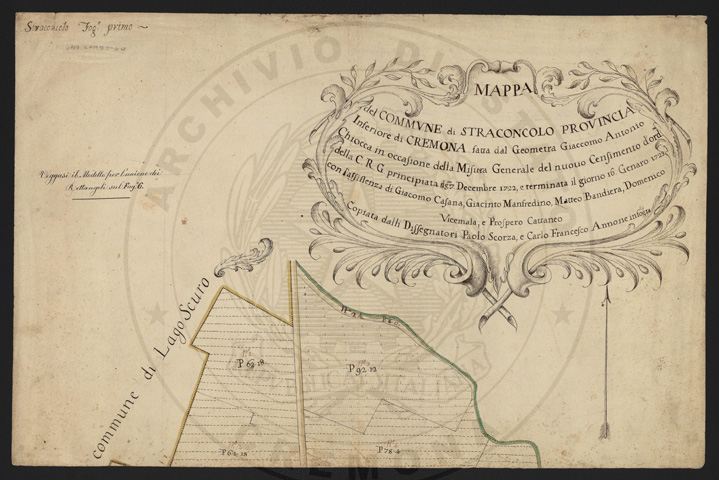 Straconcolo Fog.º primo
MAPPA
del COMMVNE di STRACONCOLO PROVINCIA
Inferiore di CREMONA fatta dal Geometra Giaccomo Antonio
Chiocca in occasione della Misura Generale del nuouo Censimento d'ord.
della C. R. G. principiata Decembre 1722, e terminata il giorno 16 Genaro
con l'assistenza di Giacomo Casana, Giacinto Manfredino, Matteo Bandiera, Domenico
Vicemala, e Prospero Cattaneo
Copiata dalli Dissegnatori Paolo Scorza, e Carlo Francesco Annone
Veggasi il Modello per l'unione dei
Rettangoli sul Fog.
commune di Lago Scuro
P 92 12
ARCHIVIO DI
CREMON